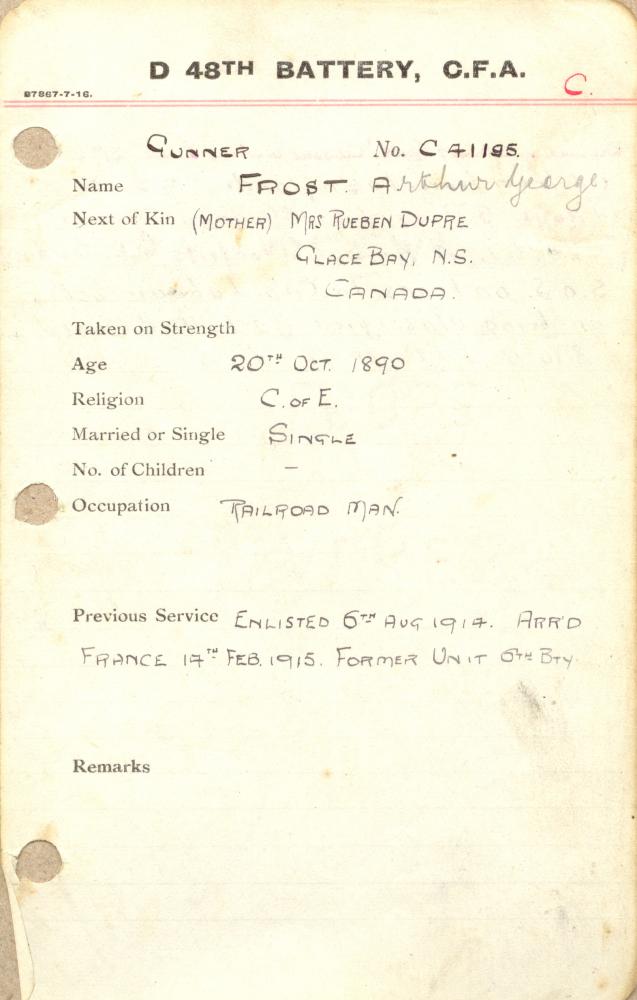 D 48TH BATTERY, C.F.A.
C.
87867-7-16.
GUNNER No. C 41195.
Name FROST. Arthur George.
Next of Kin (MOTHER) MRS RUEBEN DUPRE
GLACE BAY, N.S.
CANADA.
Taken on Strength
Age 20TH OCT. 1890
Religion C. OF E.
Married or Single SINGLE
No. of Children —
Occupation RAILROAD MAN.
Previous Service ENLISTED 6TH AUG 1914. ARR'D
FRANCE 14TH FEB. 1915. FORMER UNIT 6TH BTY.
Remarks